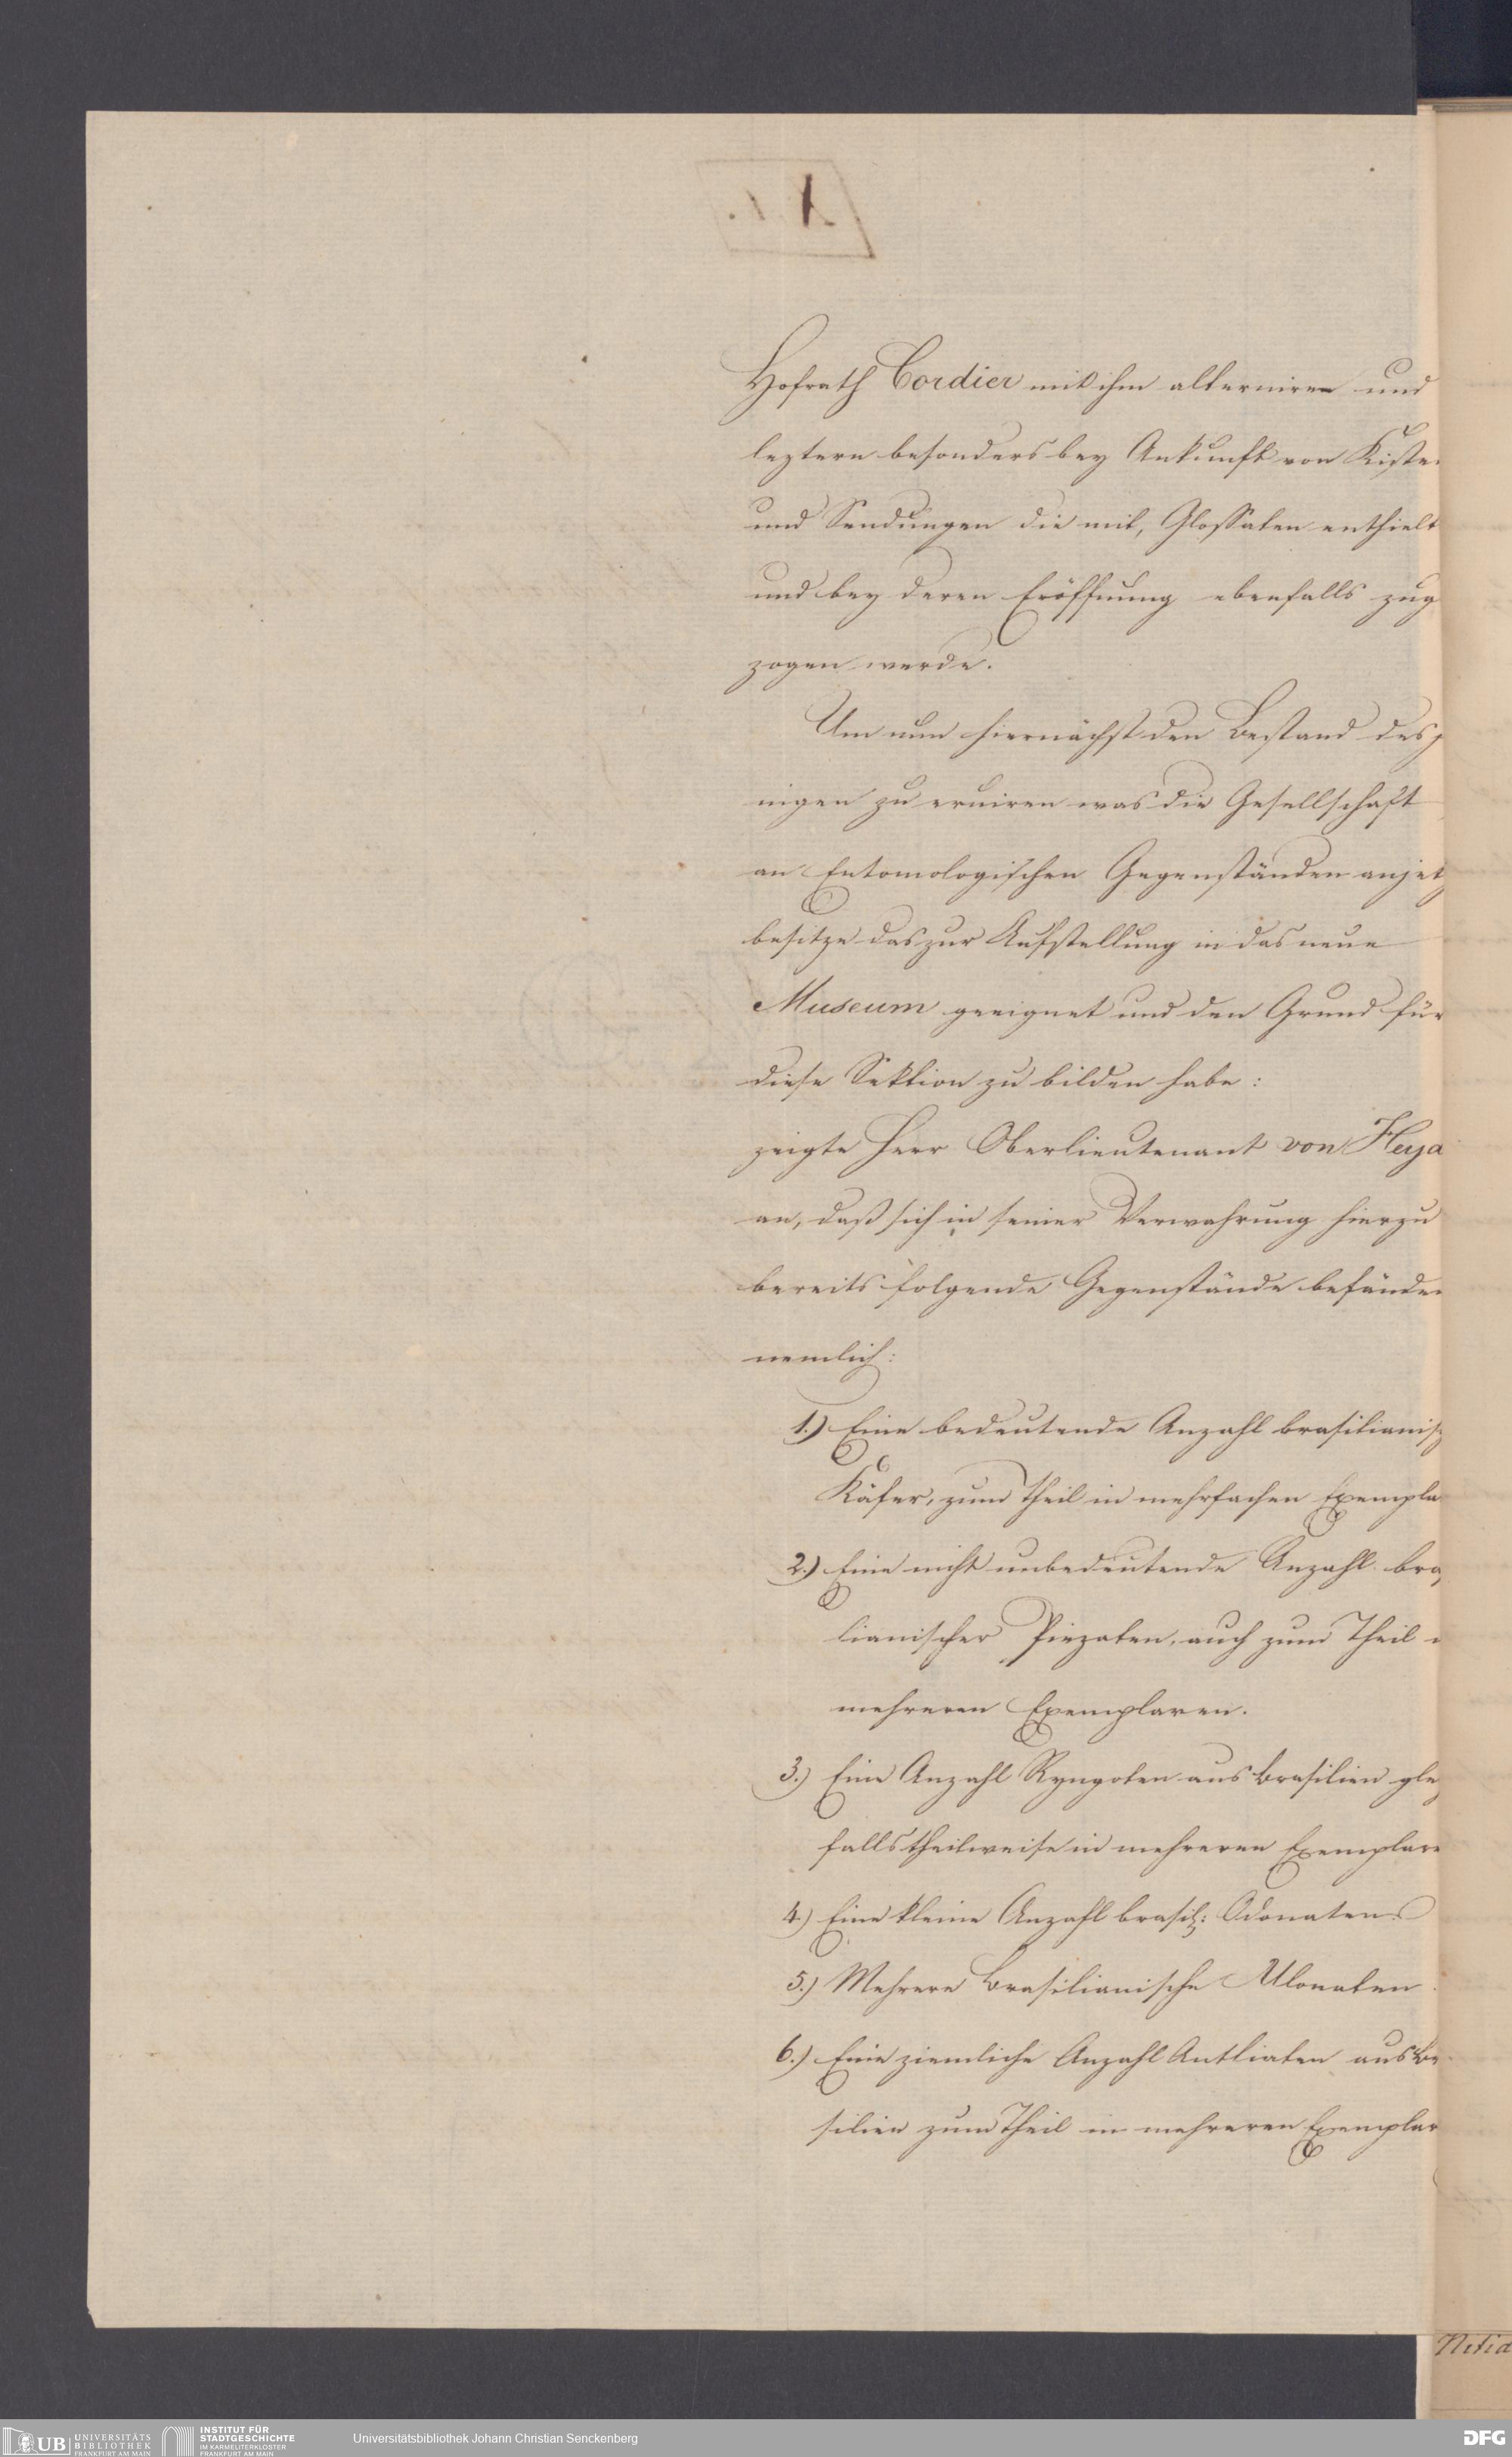 Hofrath Cordier mit ihm alterniren und
leztern besonders bey Ankunft von Kiste
und Sendungen die mit, Glossaten enthielt
und bey deren Eröffnung ebenfalls zug
zogen werde.
Um nun hiernächst den Bestand desj
nigen zu eruiren was die Gesellschaft
an Entomologischen Gegenständen anjetz
besitze das zur Aufstellung in das neue
Museum geeignet und den Grund für
diese Sektion zu bilden habe:
zeigte Herr Oberlieutenant von Heyd
an, daß sich in seiner Verwahrung hierzu
bereits folgende Gegenstände befände
nemlich:
1.) Eine bedeutende Anzahl brasilianis
Käfer, zum Theil in mehrfachen Exempla
2.) Eine nicht unbedeutende Anzahl bra
lianischer Piezaten, auch zum Theil
mehreren Exemplaren.
3.) Eine Anzahl Ryngoten aus Brasilien gle
falls theilweise in mehreren Exemplare
4.) Eine kleine Anzahl brasil: Odonaten
5.) Mehrere Brasilianische Ulonaten
6.) Eine ziemliche Anzahl Antliaten aus Br
silien zum Theil in mehreren Exemplar
UB UNIVERSITÄTS
BIBLIOTHEK
FRANKFURT AM MAIN
INSTITUT FÜR
STADTGESCHICHTE
IM KARMELITERKLOSTER
FRANKFURT AM MAIN
Universitätsbibliothek Johann Christian Senckenberg
DFG